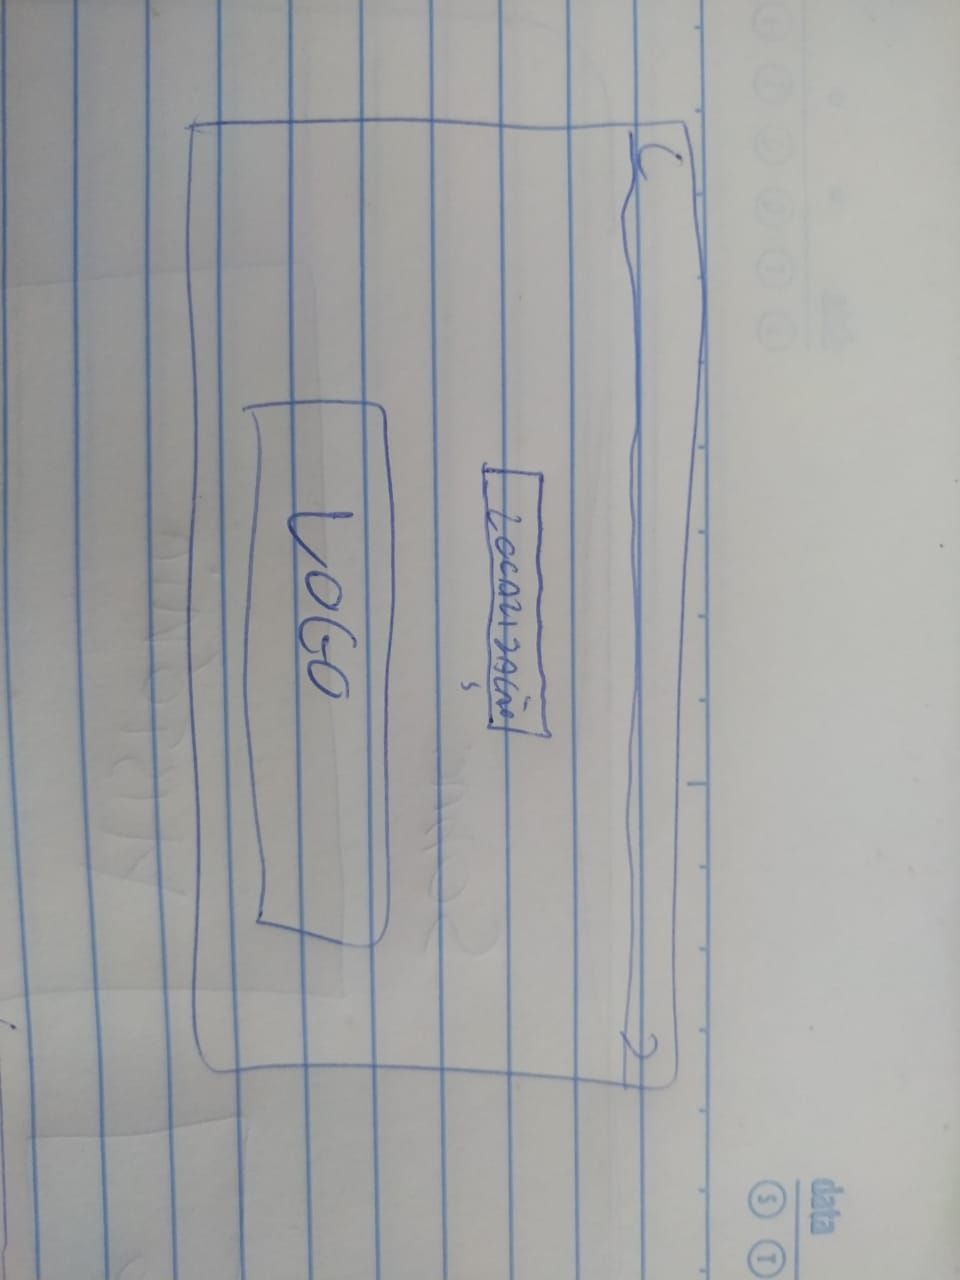 data
S T
LOCALIZAÇÃO
LOGO